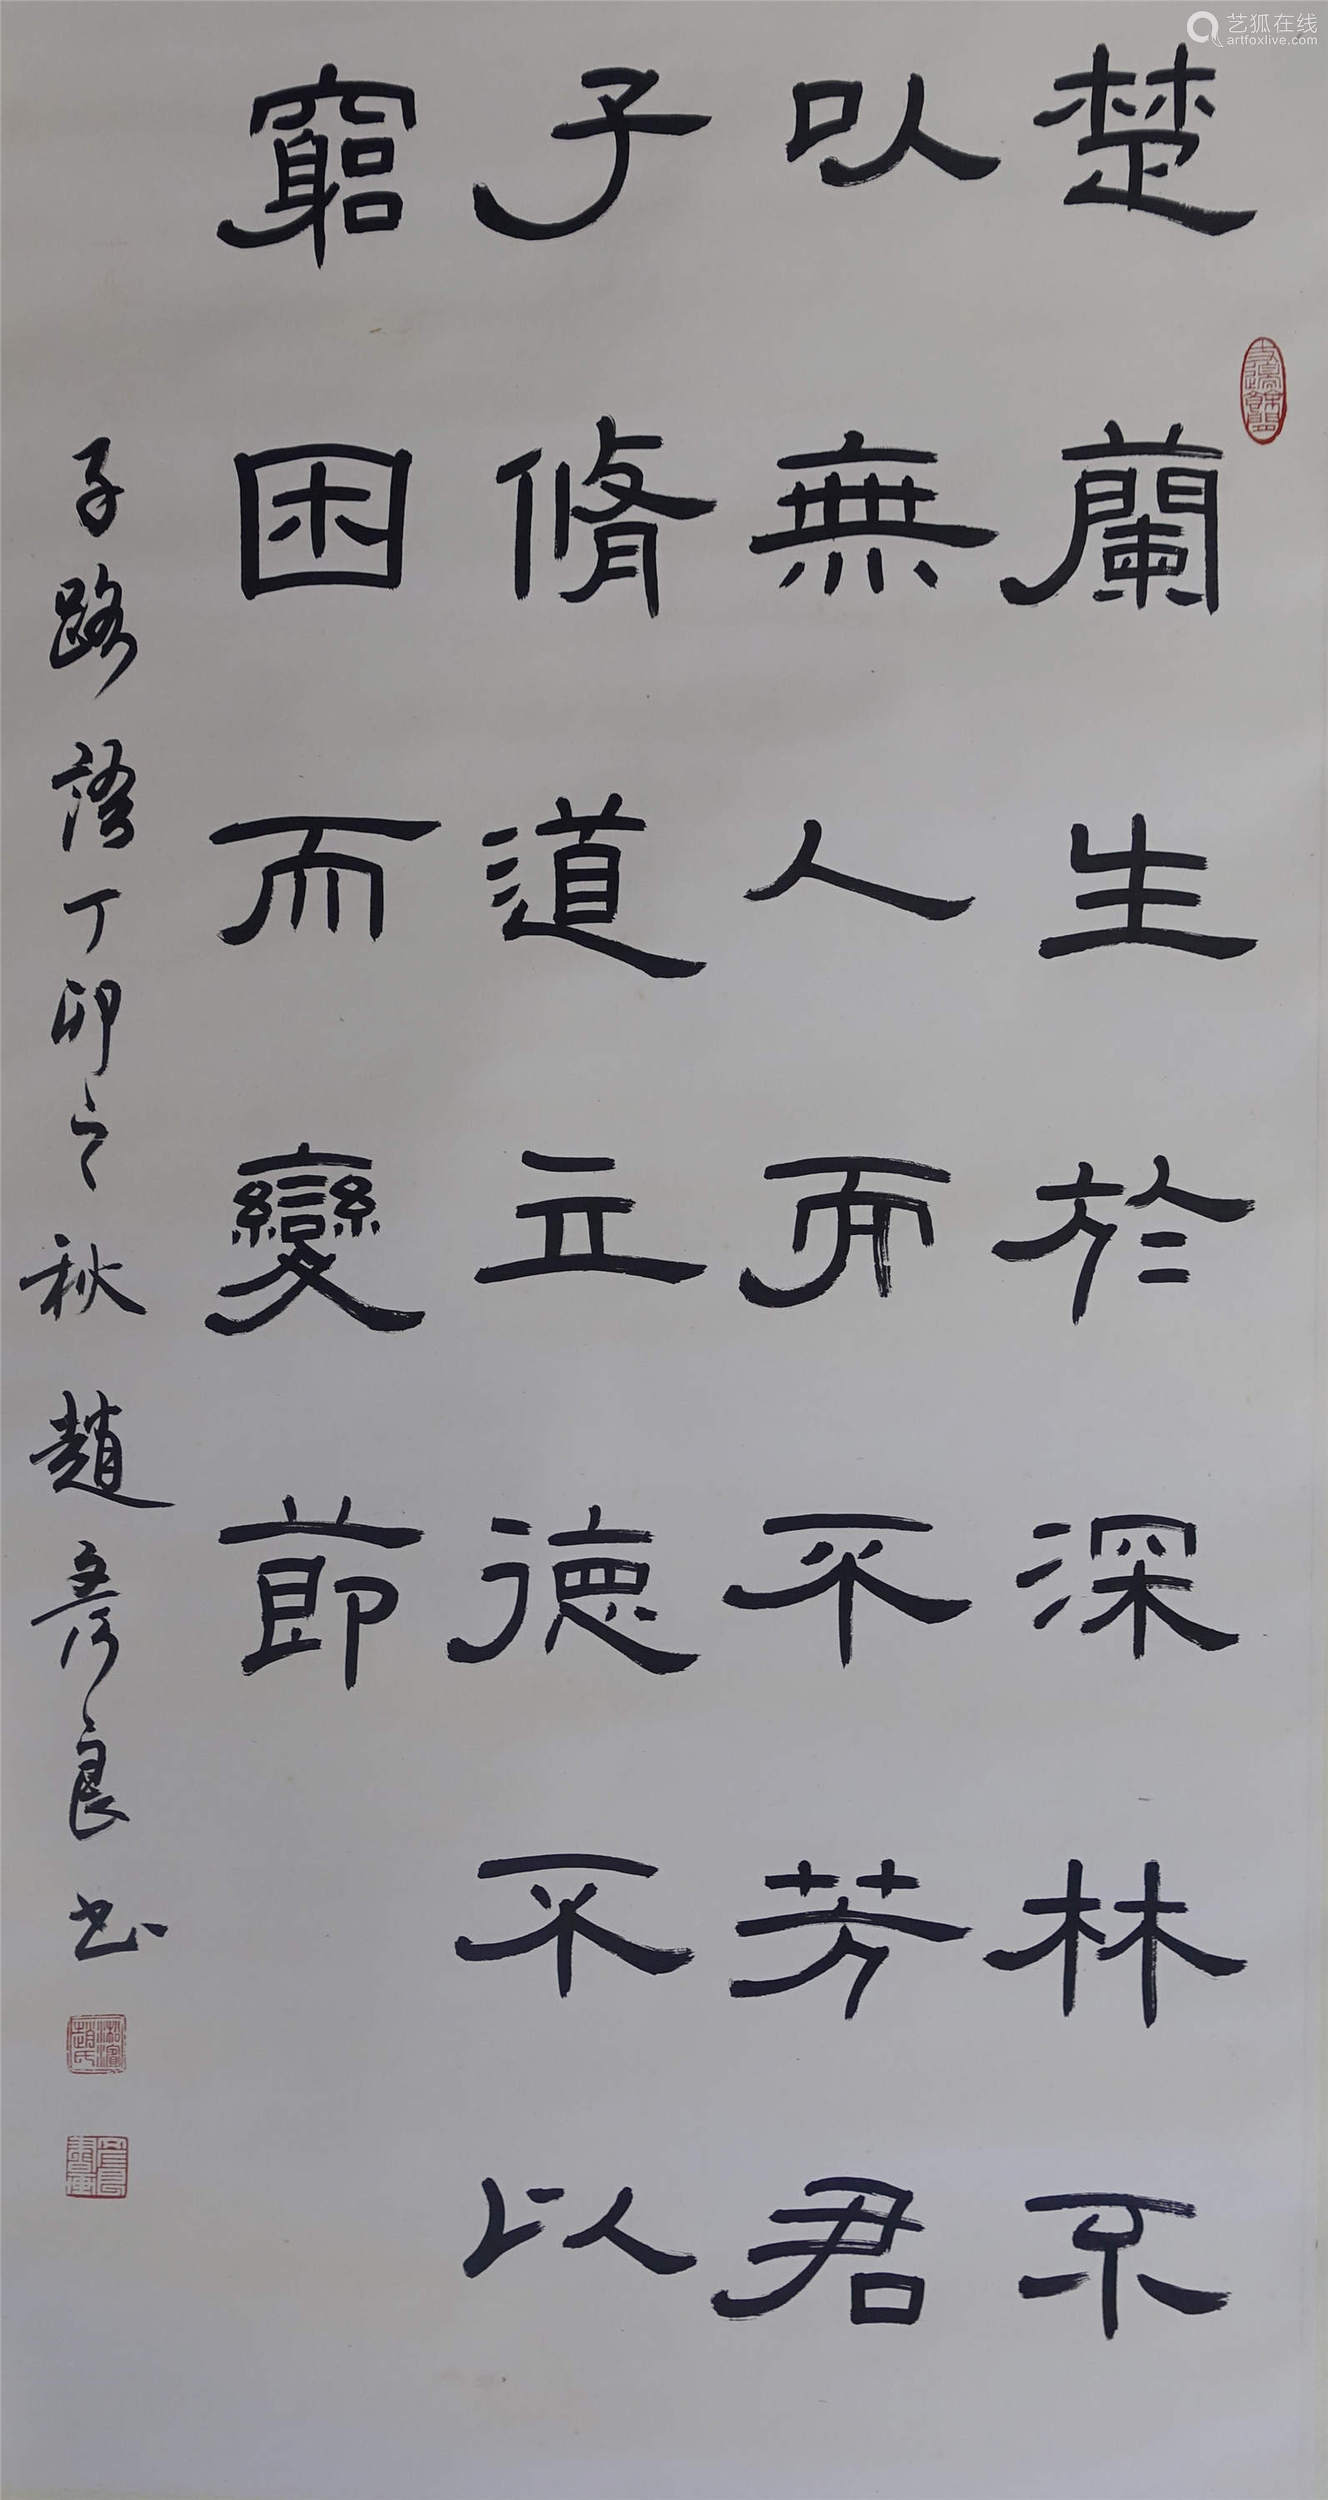 艺狐在线
artfoxlive.com
楚蘭生於深林不
以無人而不芳君
子脩道立德不以
窮困而變節
子路語丁卯之秋趙彥良书